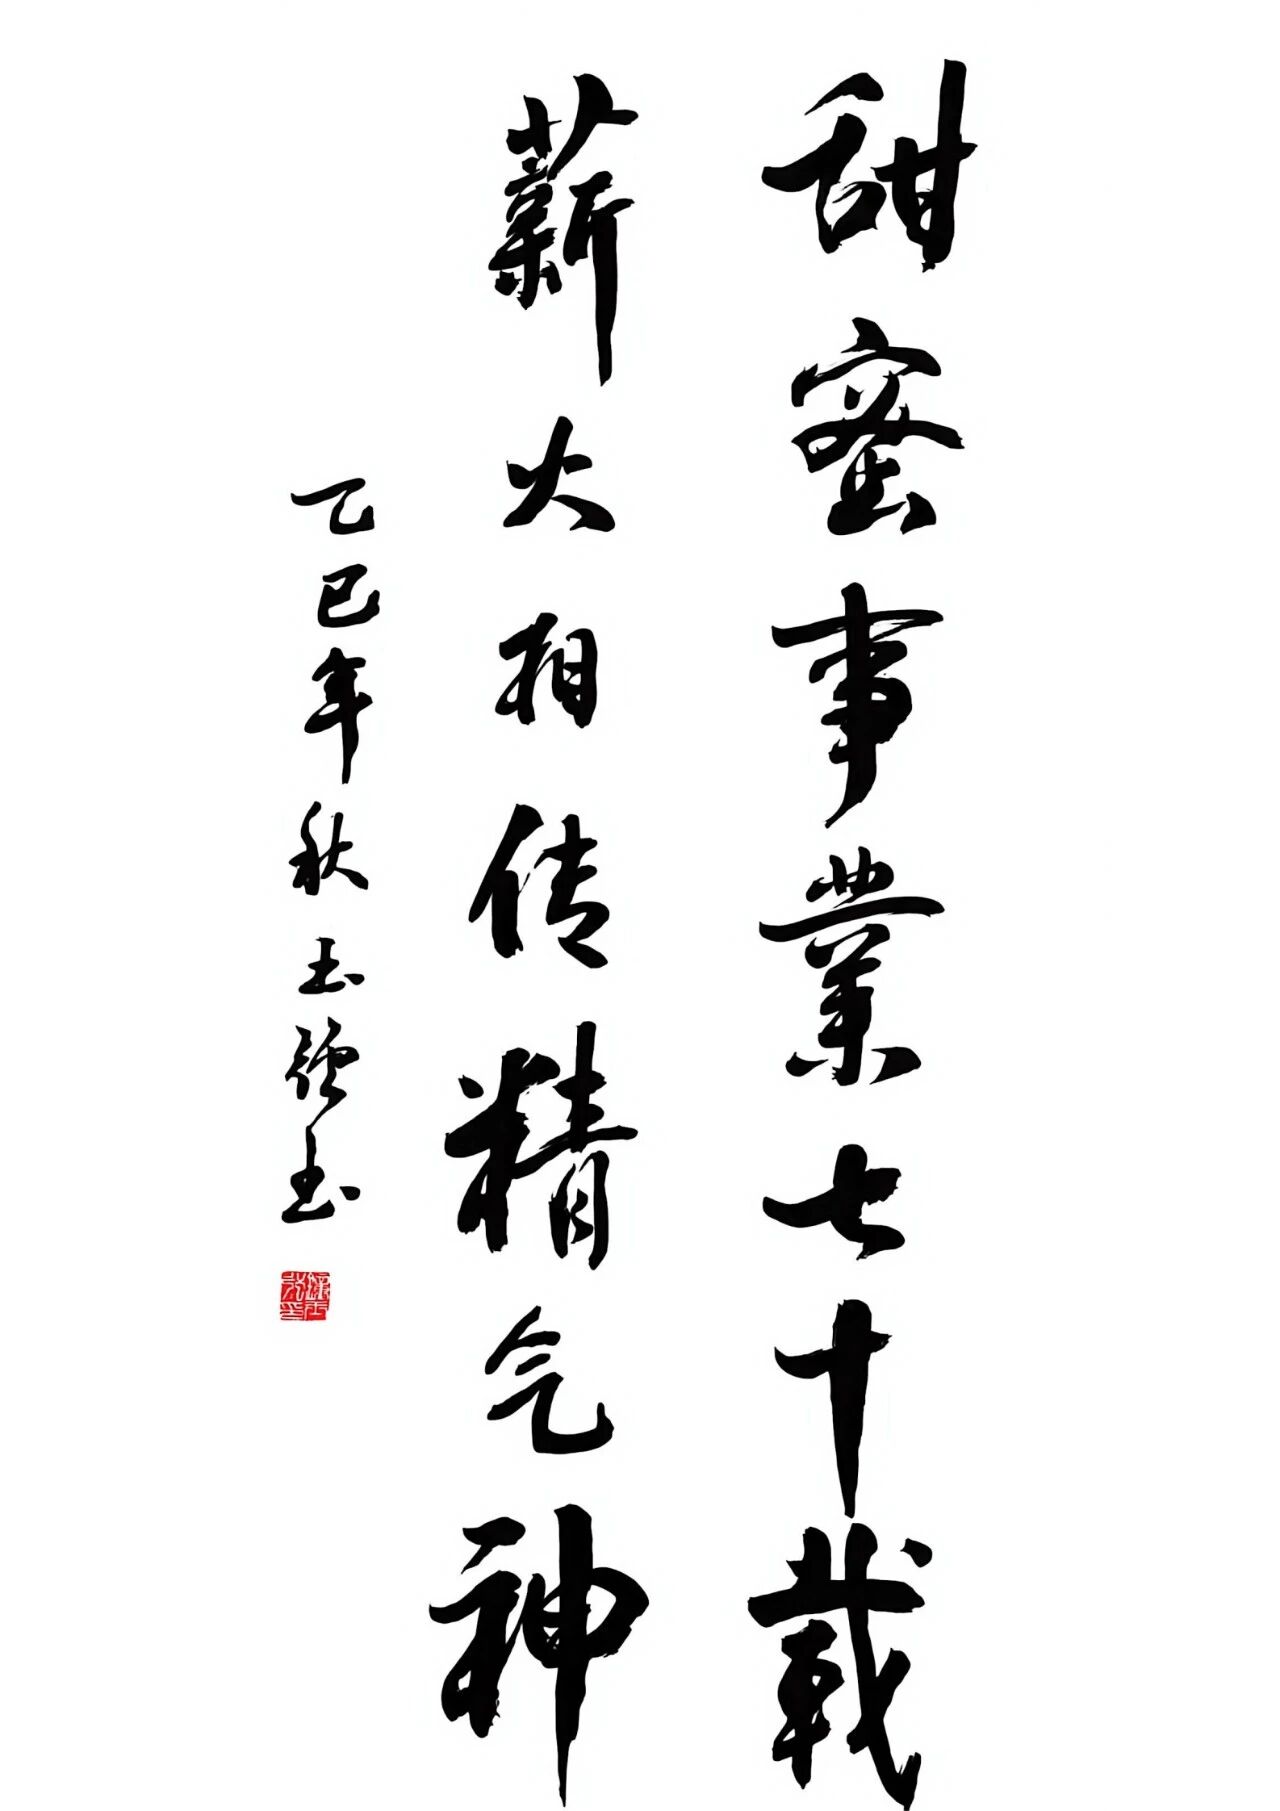 甜蜜事業七十載
薪火相传精气神
乙巳年秋玉